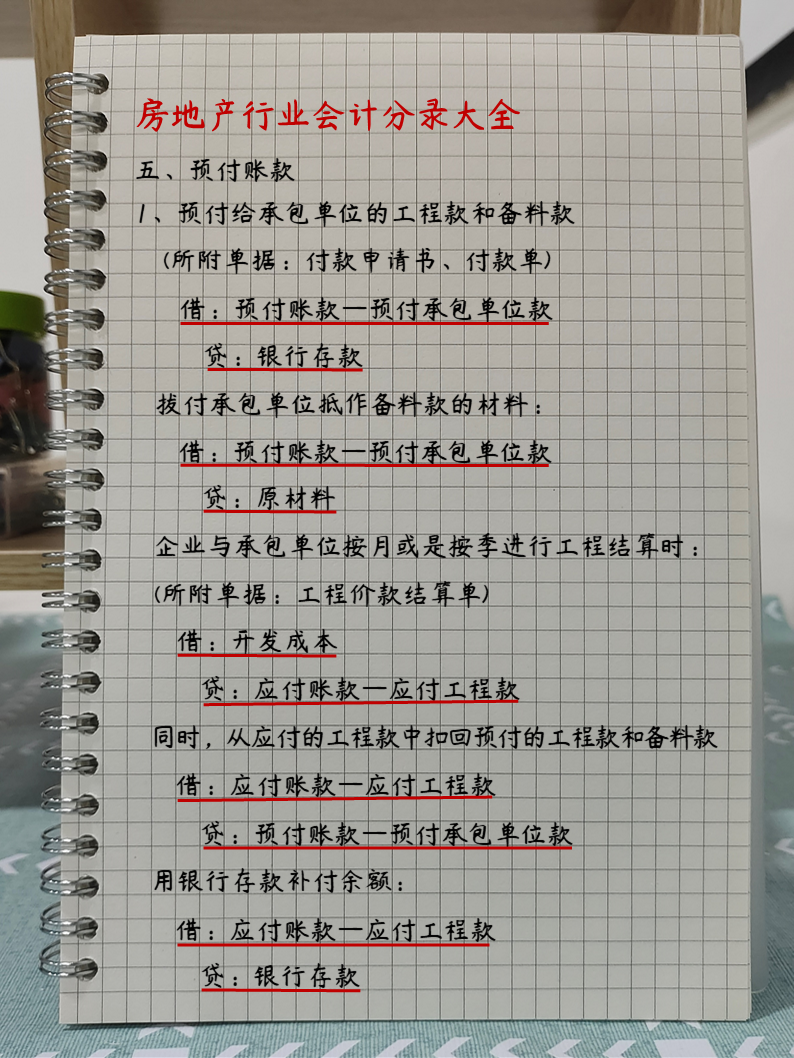 房地产行业会计分录大全
五、预付账款
1、预付给承包单位的工程款和备料款
(所附单据：付款申请书、付款单)
借：预付账款—预付承包单位款
贷：银行存款
拔付承包单位抵作备料款的材料：
借：预付账款—预付承包单位款
贷：原材料
企业与承包单位按月或是按季进行工程结算时：
(所附单据：工程价款结算单)
借：开发成本
贷：应付账款—应付工程款
同时，从应付的工程款中扣回预付的工程款和备料款
借：应付账款—应付工程款
贷：预付账款—预付承包单位款
用银行存款补付余额：
借：应付账款—应付工程款
贷：银行存款